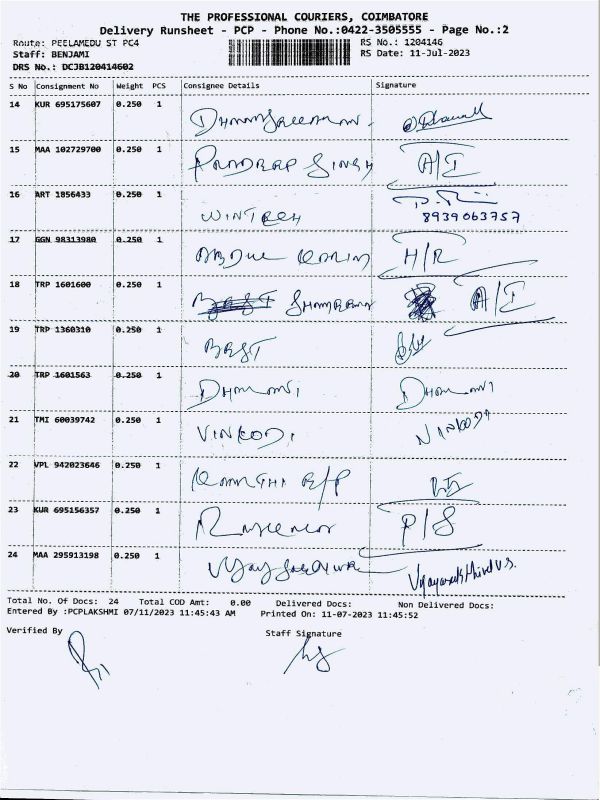 THE PROFESSIONAL COURIERS, COIMBATORE
Delivery Runsheet - PCP - Phone No.:0422-3505555 - Page No.:2
Route: PEELAMEDU ST PC4 RS No.: 1204146
Staff: BENJAMI RS Date: 11-Jul-2023
DRS No.: DCJB120414602
S No Consignment No Weight PCS Consignee Details Signature
14 KUR 695175607 0.250 1
15 MAA 102729700 0.250 1 SINGH A/I
16 ART 1856433 0.250 1 WINTECH
8939063757
17 GGN 98313980 0.250 1 ABDUL H/R
18 TRP 1601600 0.250 1 A/I
19 TRP 1360310 0.250 1 BEST
20 TRP 1601563 0.250 1
21 TMI 60039742 0.250 1 VINKODI VINKODI
22 VPL 942023646 0.250 1
23 KUR 695156357 0.250 1 P/S
24 MAA 295913198 0.250 1
Total No. Of Docs: 24 Total COD Amt: 0.00 Delivered Docs: Non Delivered Docs:
Entered By :PCPLAKSHMI 07/11/2023 11:45:43 AM Printed On: 11-07-2023 11:45:52
Verified By Staff Signature